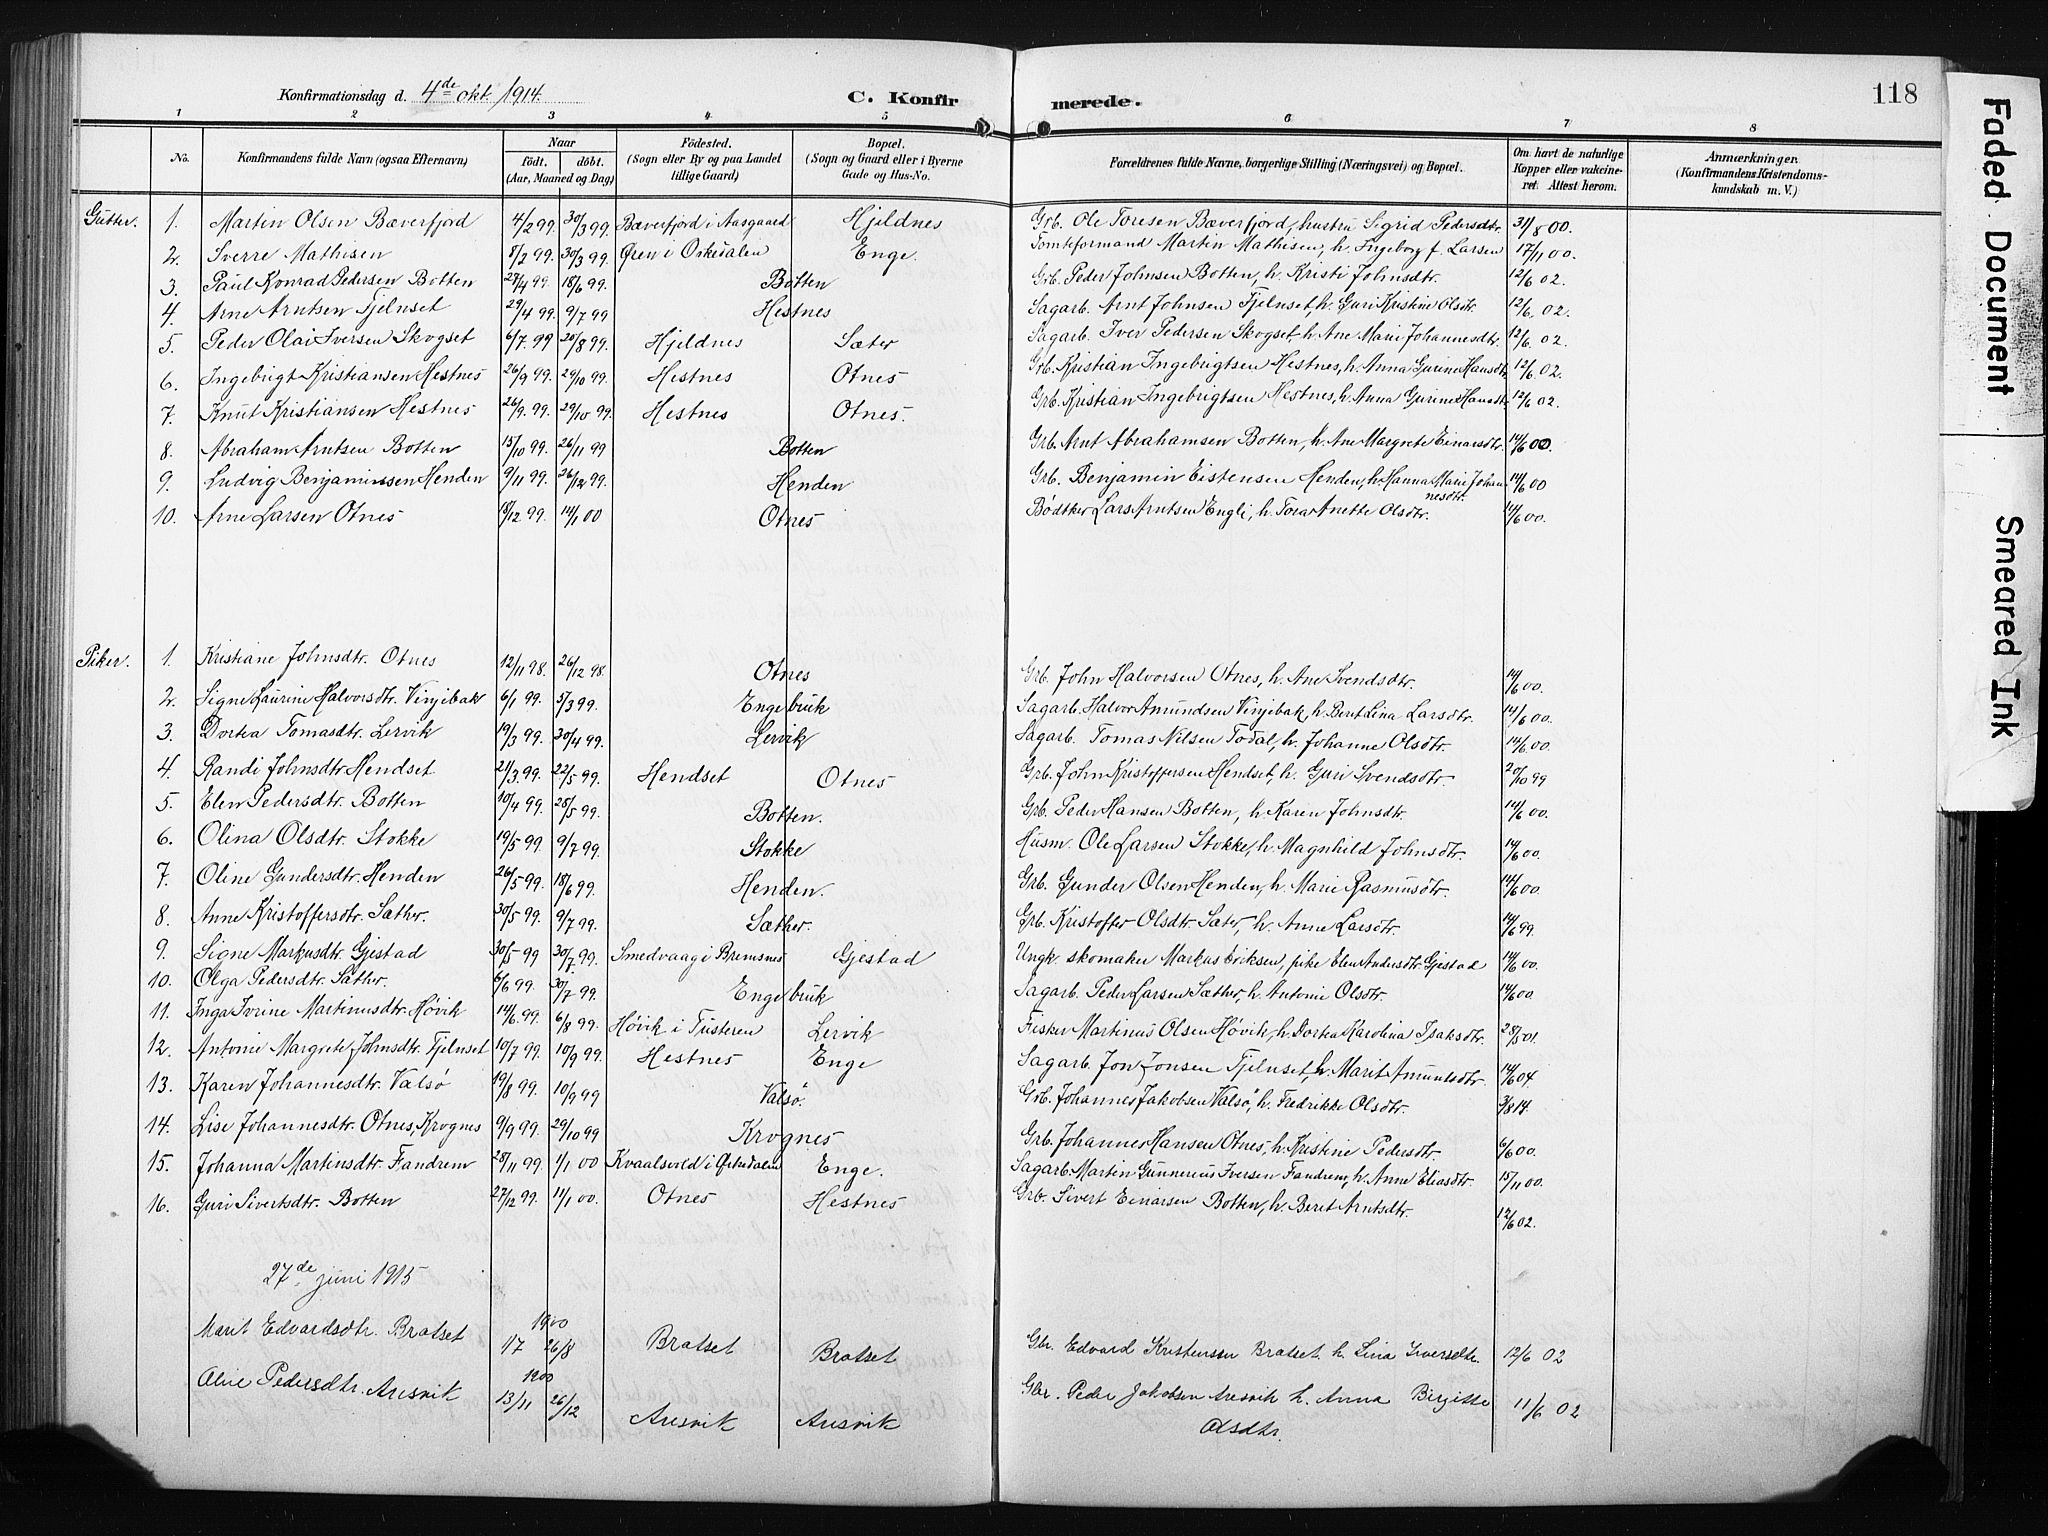 Konfirmationsdag d. 4de okt. 1914. C. Konfir merede. 118
1 2 3 4 5 6 7 8
No. Konfirmandens fulde Navn (ogsaa Efternavn) Naar Født. døbt. (Aar, Maaned og Dag) Fødested. (Sogn eller By og paa Landet tillige Gaard) Bopæl. (Sogn og Gaard eller i Byerne Gade og Hus-No. Forældrenes fulde Navne, borgerlige Stilling (Næringsvei) og Bopæl. Om havt de naturlige Kopper eller vakcineret. Attest herom. Anmærkninger. (Konfirmandens Kristendomskundskab m. V.)
Gutter. 1. Martin Olsen Bæverfjord 4/2 99. 30/3 99. Bæverfjord i Aasgaard Hjeldnes Grb. Ole Toresen Bæverfjord, hustru Sigrid Pedersdtr. 31/8 00.
2. Sverre Mathisen 8/2 99. 30/3 99. Øren i Orkedalen Enge. Tomteformand Martin Mathisen, h. Ingeborg f. Larsen 17/11 00.
3. Paul Konrad Pedersen Botten 27/4 99. 18/6 99. Botten Grb. Peder Johnsen Botten, h. Kristi Johnsdtr. 12/6 02.
4. Arne Arntsen Tjelnset 29/4 99. 9/7 99 Hestnes Sagarb. Arnt Johnsen Tjelnset, h. Guri Kristine Olsdtr. 12/6 02.
5. Peder Olai Iversen Skogset 6/7 99 20/8 99. Hjeldnes Sæter Sagarb. Iver Pedersen Skogset, h. Ane Marie Johannesdtr. 12/6 02.
6. Ingebrigt Kristiansen Hestnes 26/9 99. 29/10 99. Hestnes Otnes Grb. Kristian Ingebrigtsen Hestnes, h. Anna Gurine Hansdtr. 12/6 02.
7. Knut Kristiansen Hestnes 26/9. 99. 29/10 99. Hestnes Otnes. Grb. Kristian Ingebrigtsen Hestnes, h. Anna Gurine Hansdtr. 12/6 02.
8. Abraham Arntsen Botten 15/10 99. 26/11 99 Botten Grb. Arnt Abrahamsen Botten, h. Ane Margrete Einarsdtr. 14/6 00
9. Ludvig Benjaminsen Henden 9/11 99. 26/12 99. Henden Grb. Benjamin Eistensen Henden, h. Hanna Marie Johannesdtr. 14/6 00
10. Arne Larsen Otnes 18/12 99. 14/1 00 Otnes Bødtker Lars Arntsen Engli, h. Tora Anette Olsdtr. 14/6 00.
Piker. 1. Kristiane Johnsdtr. Otnes 12/11 98. 26/12 98. Otnes Grb. John Halvorsen Otnes, h. Ane Svendsdtr. 14/6 00.
2. Signe Laurine Halvorsdtr. Vinjebak 6/1 99. 5/3 99. Engebruk Sagarb. Halvor Amundsen Vinjebak, h. Beret Lina Larsdtr. 14/6 00.
3. Dortea Tomasdtr. Lervik 19/3 99. 30/4 99. Lervik Sagarb. Tomas Nilsen Todal, h. Johanne Olsdtr. 14/6 00.
4. Randi Johnsdtr. Hendset 21/3. 99. 22/5 99. Hendset Otnes Grb. John Kristoffersen Hendset, h. Guri Svendsdtr. 20/10 99
5. Elen Pedersdtr. Botten 10/4 99. 28/5 99. Botten. Grb. Peder Hansen Botten, h. Karen Johnsdtr. 14/6 00.
6. Olina Olsdtr. Stokke 19/5 99. 9/7 99. Stokke Husm. Ole Larsen Stokke, h. Magnhild Johnsdtr. 14/6 00.
7. Oline Gundersdtr. Henden 26/5 99. 18/6 99. Henden. Grb. Gunder Olsen Henden, h. Marie Rasmusdtr. 14/6 00.
8. Anne Kristoffersdtr. Sæther. 30/5 99. 9/7 99. Sæther. Grb. Kristoffer Olsdtr. Sæter, h. Anne Larsdtr. 14/6 99.
9. Signe Markusdtr. Gjestad 30/5 99 30/7 99. Smedvaag i Bremsnes Gjestad Ungk. skomaker Markus Eriksen, pike Elen Andersdtr. Gjestad 14/6 00.
10. Olga Pedersdtr. Sæther. 6/6 99. 30/7 99. Engebruk Sagarb. Peder Larsen Sæther, h. Antonie Olsdtr. 14/6 00.
11. Inga Ivrine Martinusdtr. Høvik 14/6. 99. 6/8 99. Høvik i Tusteren Lervik Fisker Martinus Olsen Høvik, h. Dortea Karolina Isaksdtr. 28/5 01.
12. Antonie Margrete Johnsdtr. Tjelnset 10/7 99. 10/9 99. Hestnes Enge Sagarb. Jon Jonsen Tjelnset, h. Marit Amundsdtr. 14/6 04.
13. Karen Johannesdtr. Valsø 19/8 99. 10/9 99 Valsø. Grb. Johannes Jakobsen Valsø, h. Fredrikke Olsdtr. 3/8 14.
14. Lise Johannesdtr. Otnes, Krognes 9/9 99. 29/10 99 Krognes Grb. Johannes Hansen Otnes, h. Kristine Pedersdtr. 6/6 00.
15. Johanna Martinsdtr. Fandrem 28/11 99. 1/1 00 Kvaalsvold i Orkedalen Enge. Sagarb. Martin Gunnerius Iversen Fandrem, h. Anne Eliasdtr. 15/11 00.
16. Guri Sivertsdtr. Botten 27/12 99. 14/1 00. Otnes Hestnes Grb. Sivert Einarsen Botten, h. Beret Arntsdtr. 12/6 02.
27de juni 1915
Marit Edvardsdtr. Bratset 1900 1/7 26/8 Bratset Bratset Gbr. Edvard Kristensen Bratset h. Lina Iversdtr. 12/6 02
Aline Pedersdtr. Aresvik 1900 13/11 26/12 Aresvik Aresvik Gbr. Peder Jakobsen Aresvik h. Anna Birgitte Olsdtr. 11/6 02
Faded Document
Smeared Ink